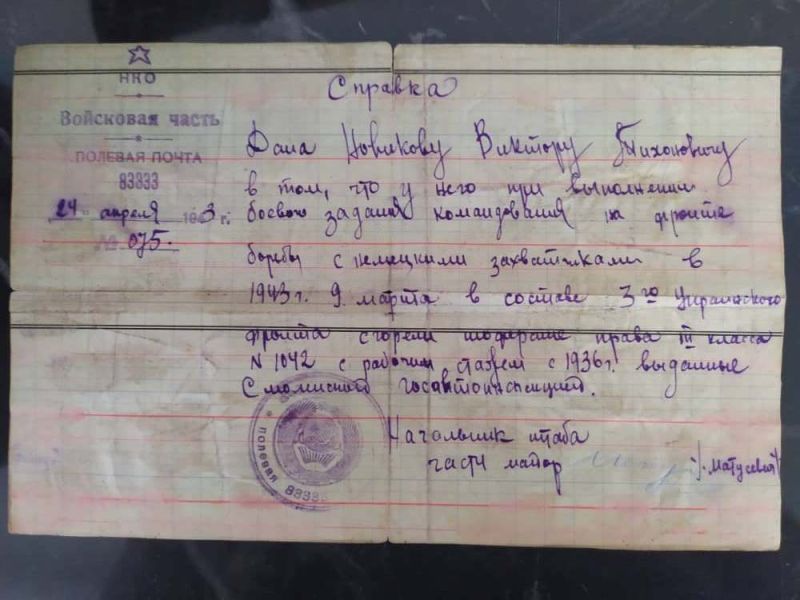 НКО
Войсковая часть
ПОЛЕВАЯ ПОЧТА
83833
24 апреля 1943 г.
№ 075.
Справка
Дана Новикову Виктору Тихоновичу
в том, что у него при выполнении
боевого задания командования на фронте
борьбы с немецкими захватчиками в
1943 г. 9 марта в составе 3го Украинского
фронта сгорели шоферские права III класса
N 1042 с рабочим стажем с 1936 г. выданные
Смоленской госавтоинспекцией.
Начальник штаба
части майор
Матусевич
полевая 83833